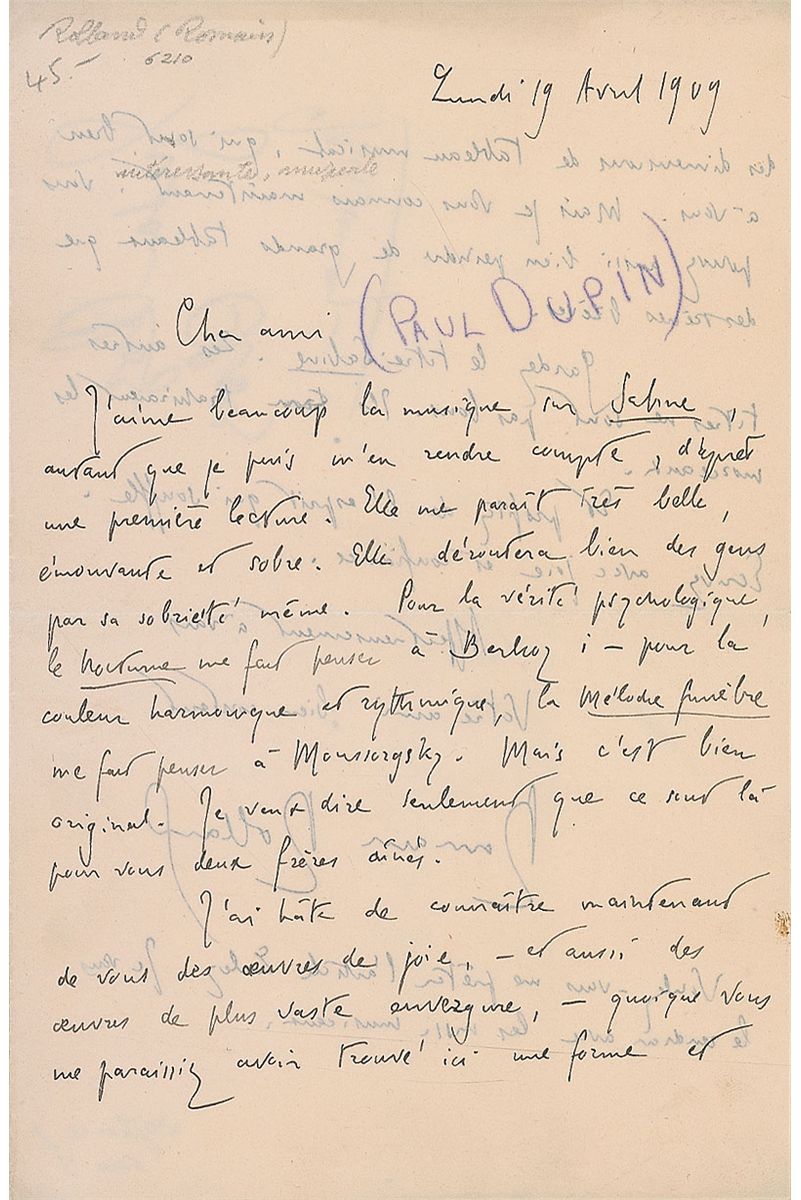 Rolland (Romain)
6210
45.-
Lundi 19 Avril 1909
intéressante, musicale
Cher ami (PAUL DUPIN)
J'aime beaucoup la musique sur Sabine,
autant que je puis m'en rendre compte, d'après
une première lecture. Elle me paraît très belle,
émouvante et sobre. Elle déroutera bien des gens
par sa sobriété même. Pour la vérité psychologique,
le Nocturne me fait penser à Berlioz ; – pour la
couleur harmonique et rythmique, la Mélodie funèbre
me fait penser à Moussorgsky. Mais c'est bien
original. Je veux dire seulement que ce sont là
pour vous deux frères aînés.
J'ai hâte de connaître maintenant
de vous des œuvres de joie, – et aussi des
œuvres de plus vaste envergure, – quoique vous
me paraissiez avoir trouvé ici une forme et